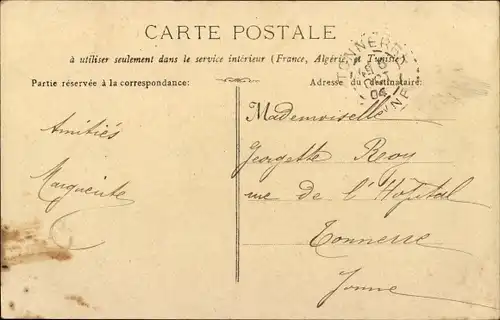 CARTE POSTALE
à utiliser seulement dans le service intérieur (France, Algérie, et Tunisie).
Partie réservée à la correspondance:
Adresse du destinataire:
TONNERRE
04
YONNE
Amitiés
Marguerite
Mademoiselle
Georgette Roy
rue de l'Hôpital
Tonnerre
Yonne